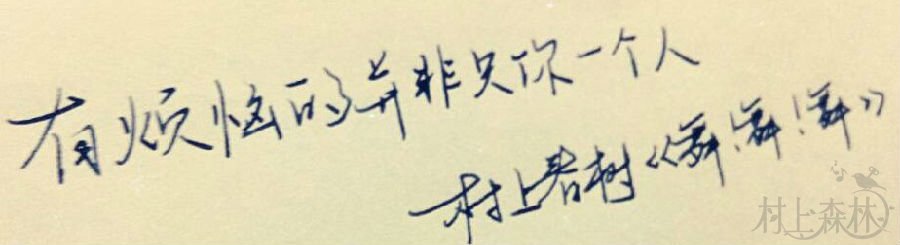 有烦恼的并非只你一个人
一村上春树《舞!舞!舞》
村上森林